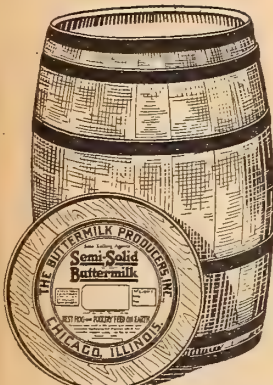 THE BUTTERMILK PRODUCERS INC.
Semi-Solid
Buttermilk
BEST HOG AND POULTRY FEED ON EARTH
CHICAGO, ILLINOIS.